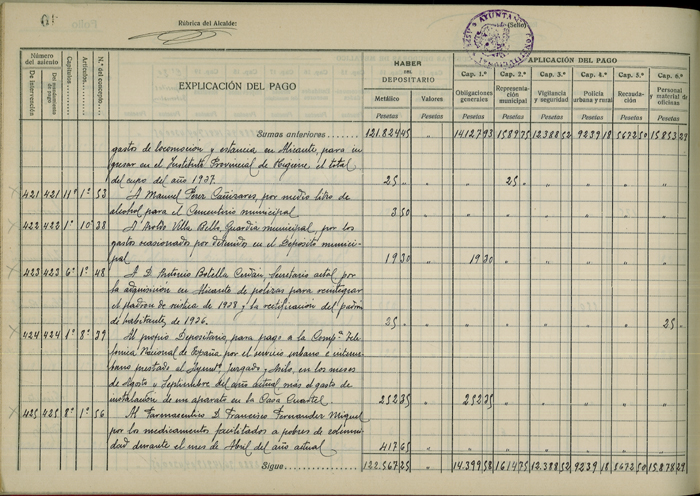 Rúbrica del Alcalde:
(Sello)
AYUNTAMIENTO CONSTITUCIONAL
Número del asiento
De intervención
Capítulos
Artículos
N.º del concepto
EXPLICACIÓN DEL PAGO
HABER DEL DEPOSITARIO
Metálico Valores
Pesetas Pesetas
APLICACIÓN DEL PAGO
Cap. 1.º Cap. 2.º Cap. 3.º Cap. 4.º Cap. 5.º Cap. 6.º
Obligaciones generales Representación municipal Vigilancia y seguridad Policía urbana y rural Recaudación Personal y material de oficinas
Pesetas Pesetas Pesetas Pesetas Pesetas Pesetas
Sumas anteriores 121.824 45 " 14127 93 1589 75 12388 52 9239 18 5672 50 15.853 29
gastos de locomoción y estancia en Alicante, para in
gresar en el Instituto Provincial de Higiene el total
del cupo del año 1937. 25 " " " 25 " " " " "
421 421 11º 1º 53 A Manuel Pérez Cañizares, por medio litro de
alcohol para el Cementerio municipal 3 50 " " " " " " "
422 422 1º 10º 38 Villa Bello, Guardia municipal, por los
gastos ocasionados por detenidos en el Depósito munici-
pal 19 30 " 19 30 " " " " "
423 423 6º 1º 48 A D. Antonio Botella Cerdán, Secretario actal por
la adquisición en Alicante de polizas para reintegrar
el Padron de rustica de 1938 y la rectificación del padrón
de habitantes de 1936. 25 " " " " " " " 25 "
424 424 1º 8º 29 Al propio Depositario, para pago a la Compª Tele
fonica Nacional de España por el servicio urbano e interur
bano prestado al Ayuntº, Juzgado y Asilo, en los meses
de Agosto y Septiembre del año actual, más el gasto de
instalación de un aparato en la Casa Cuartel 252 35 " 252 35 " " " " "
425 425 8º 1º 56 Al Farmaceutico D. Francisco Fernandez Miguel
por los medicamentos facilitados a pobres de solem
nidad durante el mes de Abril del año actual 417 65 " " " " " " "
Sigue 122.567 25 " 14.399 58 1614 75 12.388 52 9239 18 5672 50 15.878 29